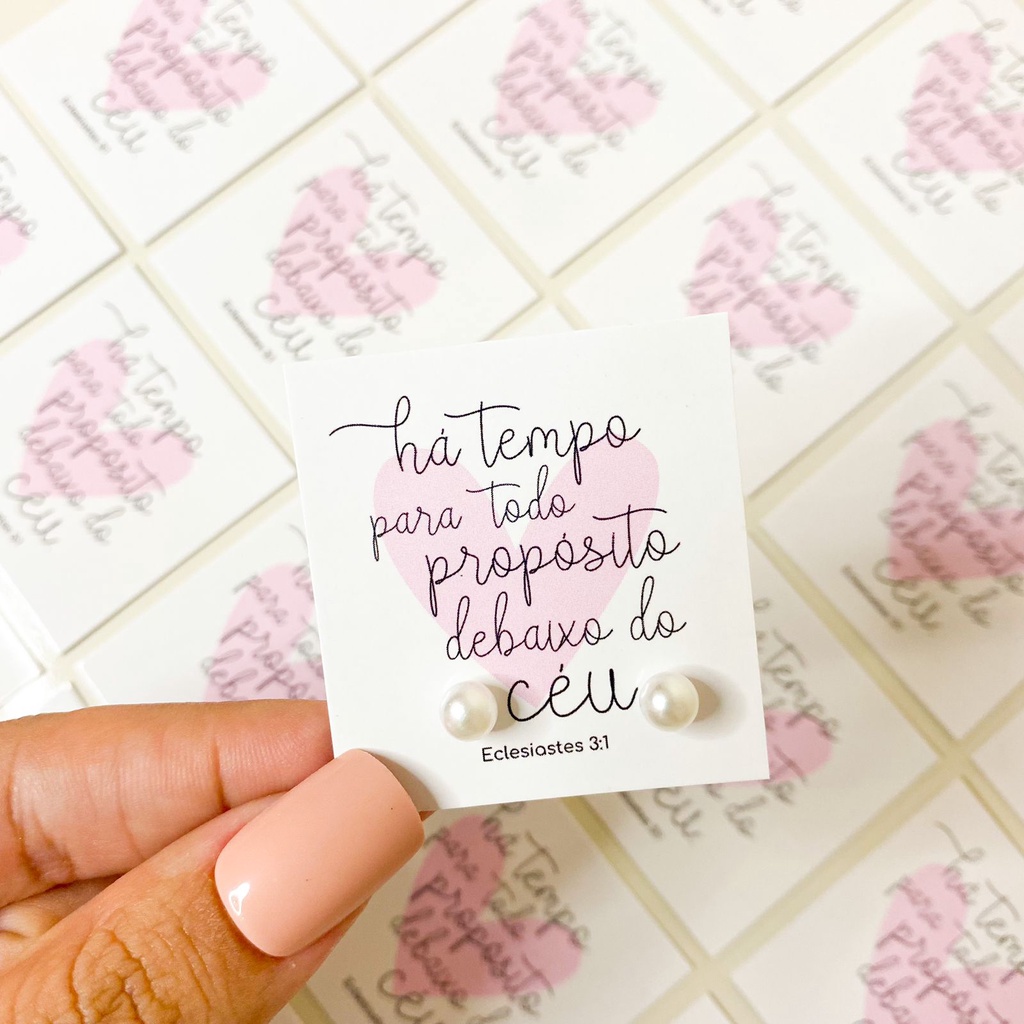 há tempo
para todo
propósito
debaixo do
céu
Eclesiastes 3:1